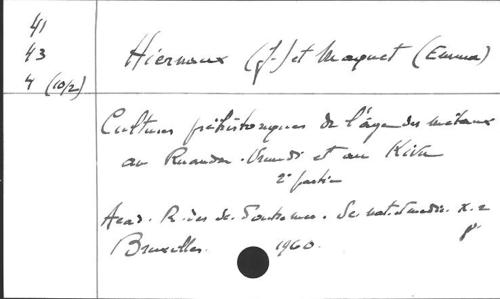 41
43
4 (10/2)
Hiernaux (J.) et Maquet (Emma)
Cultures préhistoriques de l'âge des métaux
au Ruanda-Urundi et au Kivu
2e partie
Acad. R. des Sc. d'Outremer. Sc. nat. et médic. X. 2
Bruxelles. 1960.